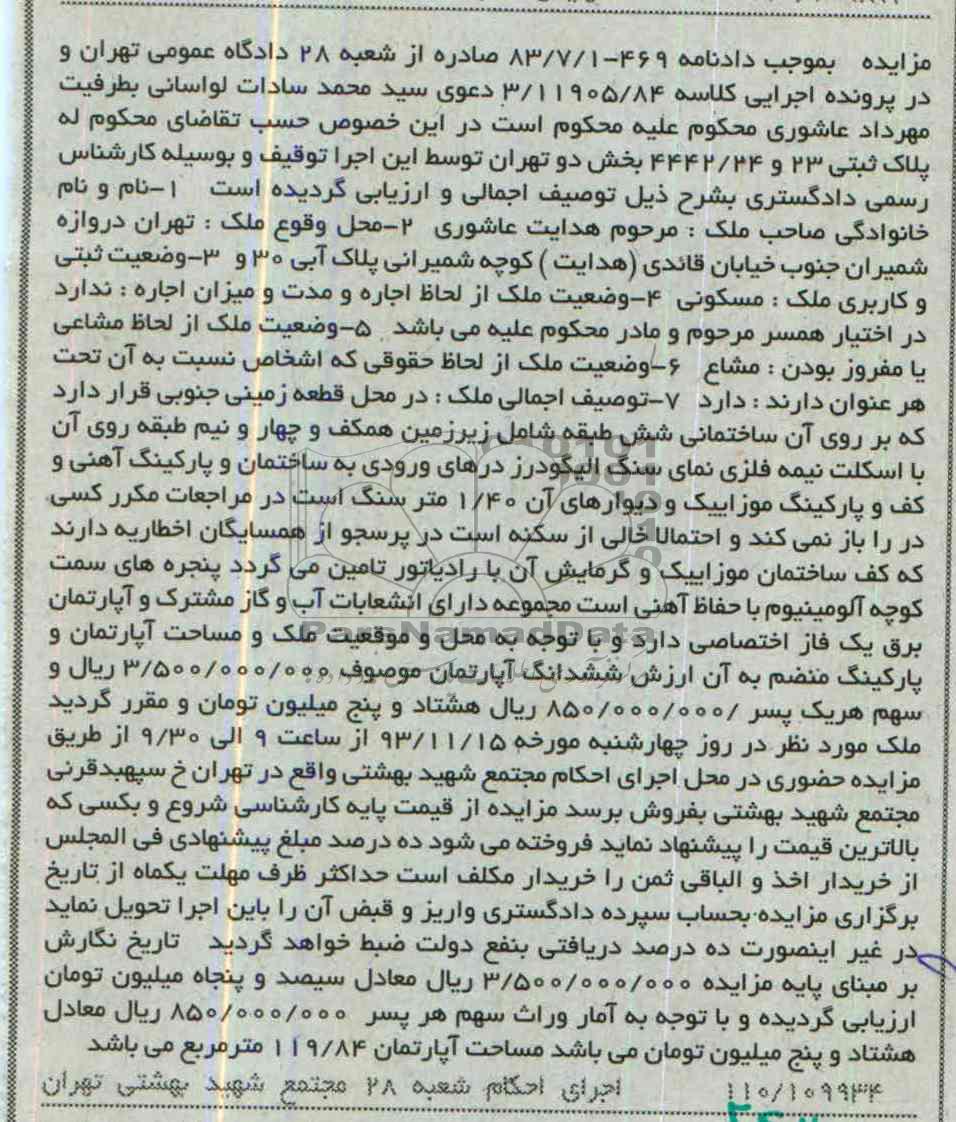 مزایده   بموجب دادنامه ۴۶۹-۸۳/۷/۱ صادره از شعبه ۲۸ دادگاه عمومی تهران و
در پرونده اجرایی کلاسه ۳/۱۱۹۰۵/۸۴ دعوی سید محمد سادات لواسانی بطرفیت
مهرداد عاشوری محکوم علیه محکوم است در این خصوص حسب تقاضای محکوم له
پلاک ثبتی ۲۳ و ۴۴۴۲/۲۴ بخش دو تهران توسط این اجرا توقیف و بوسیله کارشناس
رسمی دادگستری بشرح ذیل توصیف اجمالی و ارزیابی گردیده است   ۱-نام و نام
خانوادگی صاحب ملک : مرحوم هدایت عاشوری   ۲-محل وقوع ملک : تهران دروازه
شمیران جنوب خیابان قائدی (هدایت ) کوچه شمیرانی پلاک آبی ۳۰ و   ۳-وضعیت ثبتی
و کاربری ملک : مسکونی   ۴-وضعیت ملک از لحاظ اجاره و مدت و میزان اجاره : ندارد
در اختیار همسر مرحوم و مادر محکوم علیه می باشد   ۵-وضعیت ملک از لحاظ مشاعی
یا مفروز بودن : مشاع   ۶-وضعیت ملک از لحاظ حقوقی که اشخاص نسبت به آن تحت
هر عنوان دارند : دارد   ۷-توصیف اجمالی ملک : در محل قطعه زمینی جنوبی قرار دارد
که بر روی آن ساختمانی شش طبقه شامل زیرزمین همکف و چهار و نیم طبقه روی آن
با اسکلت نیمه فلزی نمای سنگ الیگودرز درهای ورودی به ساختمان و پارکینگ آهنی و
کف و پارکینگ موزاییک و دیوارهای آن ۱/۴۰ متر سنگ است در مراجعات مکرر کسی
در را باز نمی کند و احتمالا خالی از سکنه است در پرسجو از همسایگان اخطاریه دارند
که کف ساختمان موزاییک و گرمایش آن با رادیاتور تامین می گردد پنجره های سمت
کوچه آلومینیوم با حفاظ آهنی است مجموعه دارای انشعابات آب و گاز مشترک و آپارتمان
برق یک فاز اختصاصی دارد و با توجه به محل و موقعیت ملک و مساحت آپارتمان و
پارکینگ منضم به آن ارزش ششدانگ آپارتمان موصوف ۳/۵۰۰/۰۰۰/۰۰۰ ریال و
سهم هریک پسر /۸۵۰/۰۰۰/۰۰۰ ریال هشتاد و پنج میلیون تومان و مقرر گردید
ملک مورد نظر در روز چهارشنبه مورخه ۹۳/۱۱/۱۵ از ساعت ۹ الی ۹/۳۰ از طریق
مزایده حضوری در محل اجرای احکام مجتمع شهید بهشتی واقع در تهران خ سپهبدقرنی
مجتمع شهید بهشتی بفروش برسد مزایده از قیمت پایه کارشناسی شروع و بکسی که
بالاترین قیمت را پیشنهاد نماید فروخته می شود ده درصد مبلغ پیشنهادی فی المجلس
از خریدار اخذ و الباقی ثمن را خریدار مکلف است حداکثر ظرف مهلت یکماه از تاریخ
برگزاری مزایده بحساب سپرده دادگستری واریز و قبض آن را باین اجرا تحویل نماید
در غیر اینصورت ده درصد دریافتی بنفع دولت ضبط خواهد گردید   تاریخ نگارش
بر مبنای پایه مزایده ۳/۵۰۰/۰۰۰/۰۰۰ ریال معادل سیصد و پنجاه میلیون تومان
ارزیابی گردیده و با توجه به آمار وراث سهم هر پسر  ۸۵۰/۰۰۰/۰۰۰ ریال معادل
هشتاد و پنج میلیون تومان می باشد مساحت آپارتمان ۱۱۹/۸۴ مترمربع می باشد
۱۱۰/۱۰۹۹۳۴   اجرای احکام شعبه ۲۸ مجتمع شهید بهشتی تهران
ParsNamadData